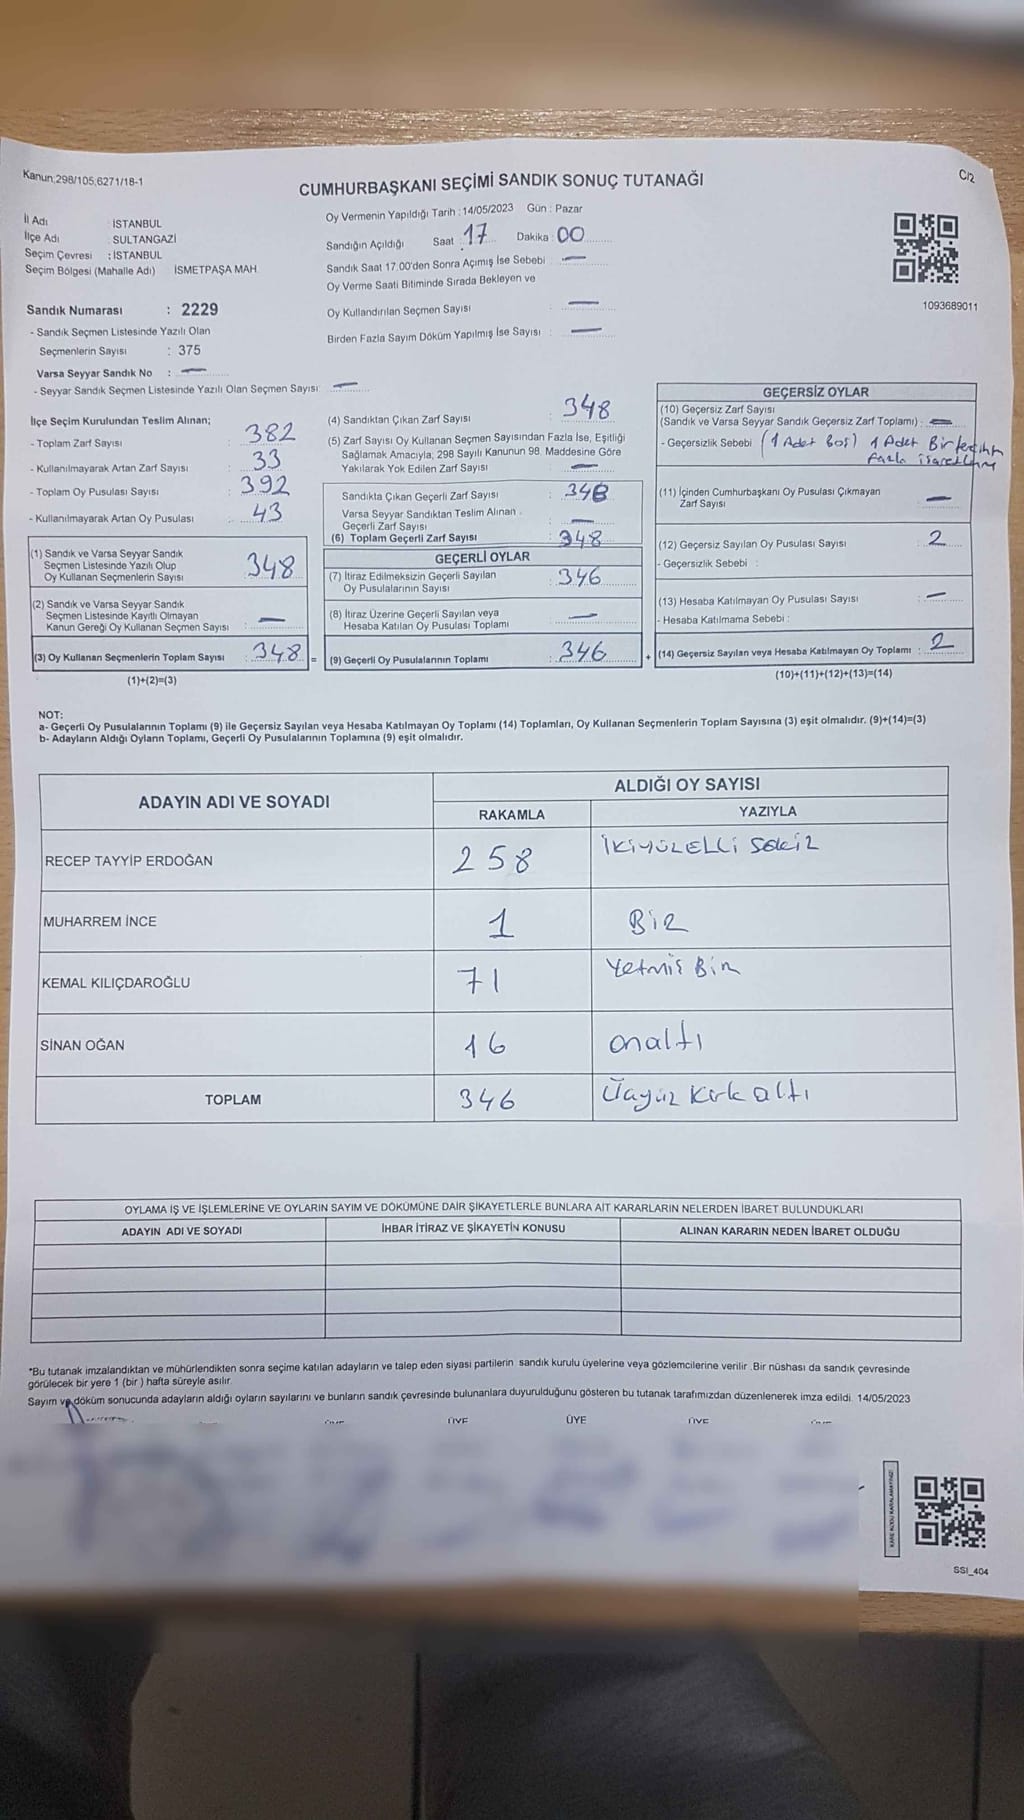 Kanun;298/105,6271/18-1
C/2
CUMHURBAŞKANI SEÇİMİ SANDIK SONUÇ TUTANAĞI
İl Adı : İSTANBUL
İlçe Adı : SULTANGAZİ
Seçim Çevresi : İSTANBUL
Seçim Bölgesi (Mahalle Adı) İSMETPAŞA MAH.
Sandık Numarası : 2229
- Sandık Seçmen Listesinde Yazılı Olan
Seçmenlerin Sayısı : 375
Varsa Seyyar Sandık No : —
- Seyyar Sandık Seçmen Listesinde Yazılı Olan Seçmen Sayısı: —
Oy Vermenin Yapıldığı Tarih : 14/05/2023 Gün : Pazar
Sandığın Açıldığı Saat : 17 Dakika : 00
Sandık Saat 17.00'den Sonra Açımış İse Sebebi : —
Oy Verme Saati Bitiminde Sırada Bekleyen ve
Oy Kullandırılan Seçmen Sayısı : —
Birden Fazla Sayım Döküm Yapılmış İse Sayısı : —
1093689011
İlçe Seçim Kurulundan Teslim Alınan;
- Toplam Zarf Sayısı : 382
- Kullanılmayarak Artan Zarf Sayısı : 33
- Toplam Oy Pusulası Sayısı : 392
- Kullanılmayarak Artan Oy Pusulası : 43
(1) Sandık ve Varsa Seyyar Sandık
Seçmen Listesinde Yazılı Olup
Oy Kullanan Seçmenlerin Sayısı : 348
(2) Sandık ve Varsa Seyyar Sandık
Seçmen Listesinde Kayıtlı Olmayan
Kanun Gereği Oy Kullanan Seçmen Sayısı : —
(3) Oy Kullanan Seçmenlerin Toplam Sayısı : 348 =
(1)+(2)=(3)
(4) Sandıktan Çıkan Zarf Sayısı : 348
(5) Zarf Sayısı Oy Kullanan Seçmen Sayısından Fazla İse, Eşitliği
Sağlamak Amacıyla, 298 Sayılı Kanunun 98. Maddesine Göre
Yakılarak Yok Edilen Zarf Sayısı : —
Sandıkta Çıkan Geçerli Zarf Sayısı : 348
Varsa Seyyar Sandıktan Teslim Alınan
Geçerli Zarf Sayısı : —
(6) Toplam Geçerli Zarf Sayısı : 348
GEÇERLİ OYLAR
(7) İtiraz Edilmeksizin Geçerli Sayılan
Oy Pusulalarının Sayısı : 346
(8) İtiraz Üzerine Geçerli Sayılan veya
Hesaba Katılan Oy Pusulası Toplamı : —
(9) Geçerli Oy Pusulalarının Toplamı : 346 +
GEÇERSİZ OYLAR
(10) Geçersiz Zarf Sayısı
(Sandık ve Varsa Seyyar Sandık Geçersiz Zarf Toplamı) : —
- Geçersizlik Sebebi (1 Adet Boş) 1 Adet Birtercihten
fazla işaretlenmiş
(11) İçinden Cumhurbaşkanı Oy Pusulası Çıkmayan
Zarf Sayısı : —
(12) Geçersiz Sayılan Oy Pusulası Sayısı : 2
- Geçersizlik Sebebi :
(13) Hesaba Katılmayan Oy Pusulası Sayısı : —
- Hesaba Katılmama Sebebi :
(14) Geçersiz Sayılan veya Hesaba Katılmayan Oy Toplamı : 2
(10)+(11)+(12)+(13)=(14)
NOT:
a- Geçerli Oy Pusulalarının Toplamı (9) ile Geçersiz Sayılan veya Hesaba Katılmayan Oy Toplamı (14) Toplamları, Oy Kullanan Seçmenlerin Toplam Sayısına (3) eşit olmalıdır. (9)+(14)=(3)
b- Adayların Aldığı Oyların Toplamı, Geçerli Oy Pusulalarının Toplamına (9) eşit olmalıdır.
ADAYIN ADI VE SOYADI ALDIĞI OY SAYISI
RAKAMLA YAZIYLA
RECEP TAYYİP ERDOĞAN 258 İKİYÜZELLİ Sekiz
MUHARREM İNCE 1 BİR
KEMAL KILIÇDAROĞLU 71 Yetmiş Bir
SİNAN OĞAN 16 onaltı
TOPLAM 346 Üçyüz Kırk altı
OYLAMA İŞ VE İŞLEMLERİNE VE OYLARIN SAYIM VE DÖKÜMÜNE DAİR ŞİKAYETLERLE BUNLARA AİT KARARLARIN NELERDEN İBARET BULUNDUKLARI
ADAYIN ADI VE SOYADI İHBAR İTİRAZ VE ŞİKAYETİN KONUSU ALINAN KARARIN NEDEN İBARET OLDUĞU
*Bu tutanak imzalandıktan ve mühürlendikten sonra seçime katılan adayların ve talep eden siyasi partilerin sandık kurulu üyelerine veya gözlemcilerine verilir .Bir nüshası da sandık çevresinde
görülecek bir yere 1 (bir ) hafta süreyle asılır.
Sayım ve döküm sonucunda adayların aldığı oyların sayılarını ve bunların sandık çevresinde bulunanlara duyurulduğunu gösteren bu tutanak tarafımızdan düzenlenerek imza edildi. 14/05/2023
ÜYE ÜYE ÜYE
KARE KODU KARALAMAYINIZ!
SSI_404